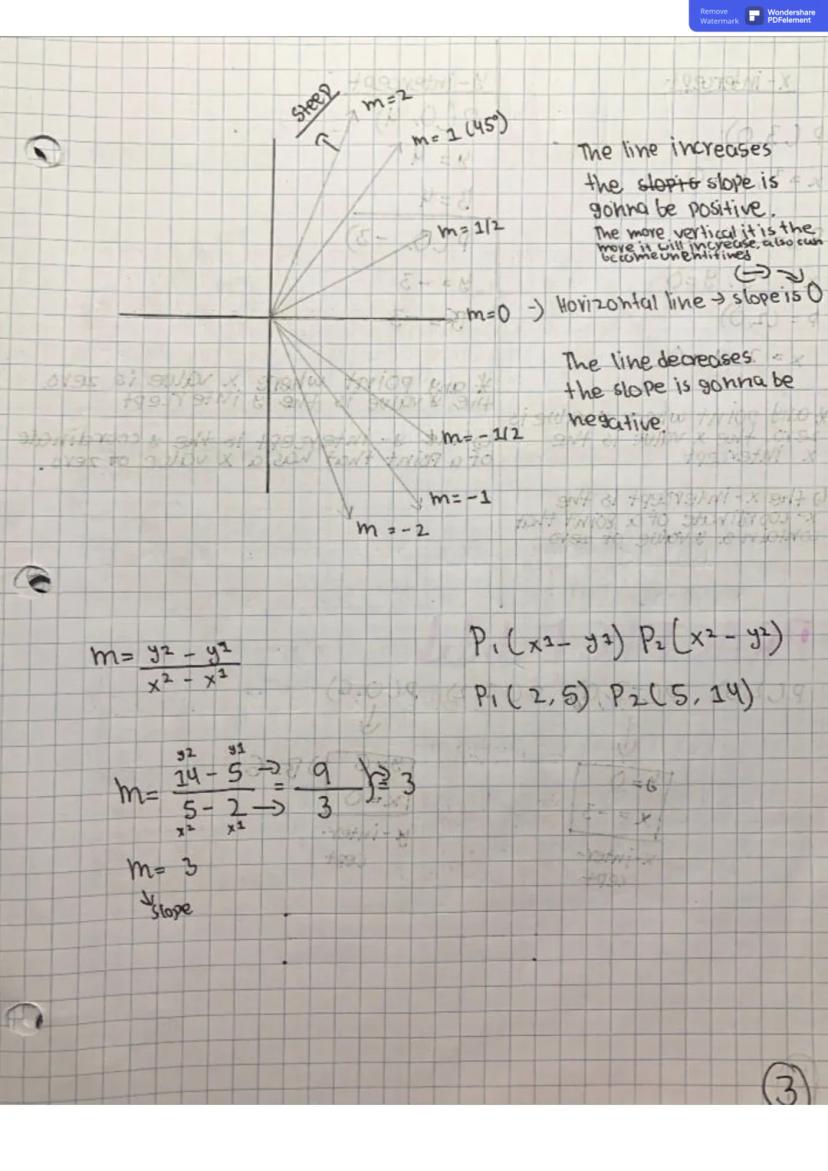 Remove
Watermark
Wondershare
PDFelement
steep
m=2
m=1 (45°)
m=1/2
m=0 → Horizontal line → slope is 0
m=-1/2
m=-1
m=-2
The line increases
the slope is
gonna be positive.
The more vertical it is the
more it will increase, also can
become
The line decreases
the slope is gonna be
negative.
m= y2 - y1
x2 - x1
P1 (x1 - y1) P2 (x2 - y2)
P1 (2,5) P2 (5, 14)
y2 y1
m= 14 - 5 → = 9 } = 3
5 - 2 → 3
x2 x1
m= 3
↓ slope
3